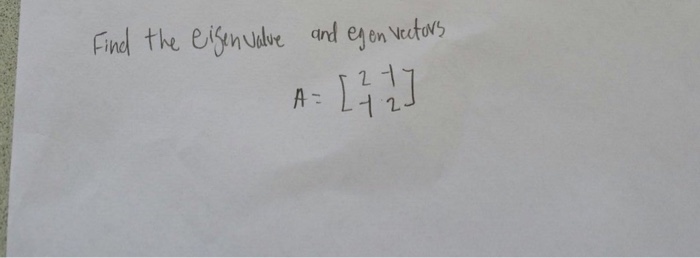 Find the eigenvalue and egen vectors
A = [2 -1
-1 2]